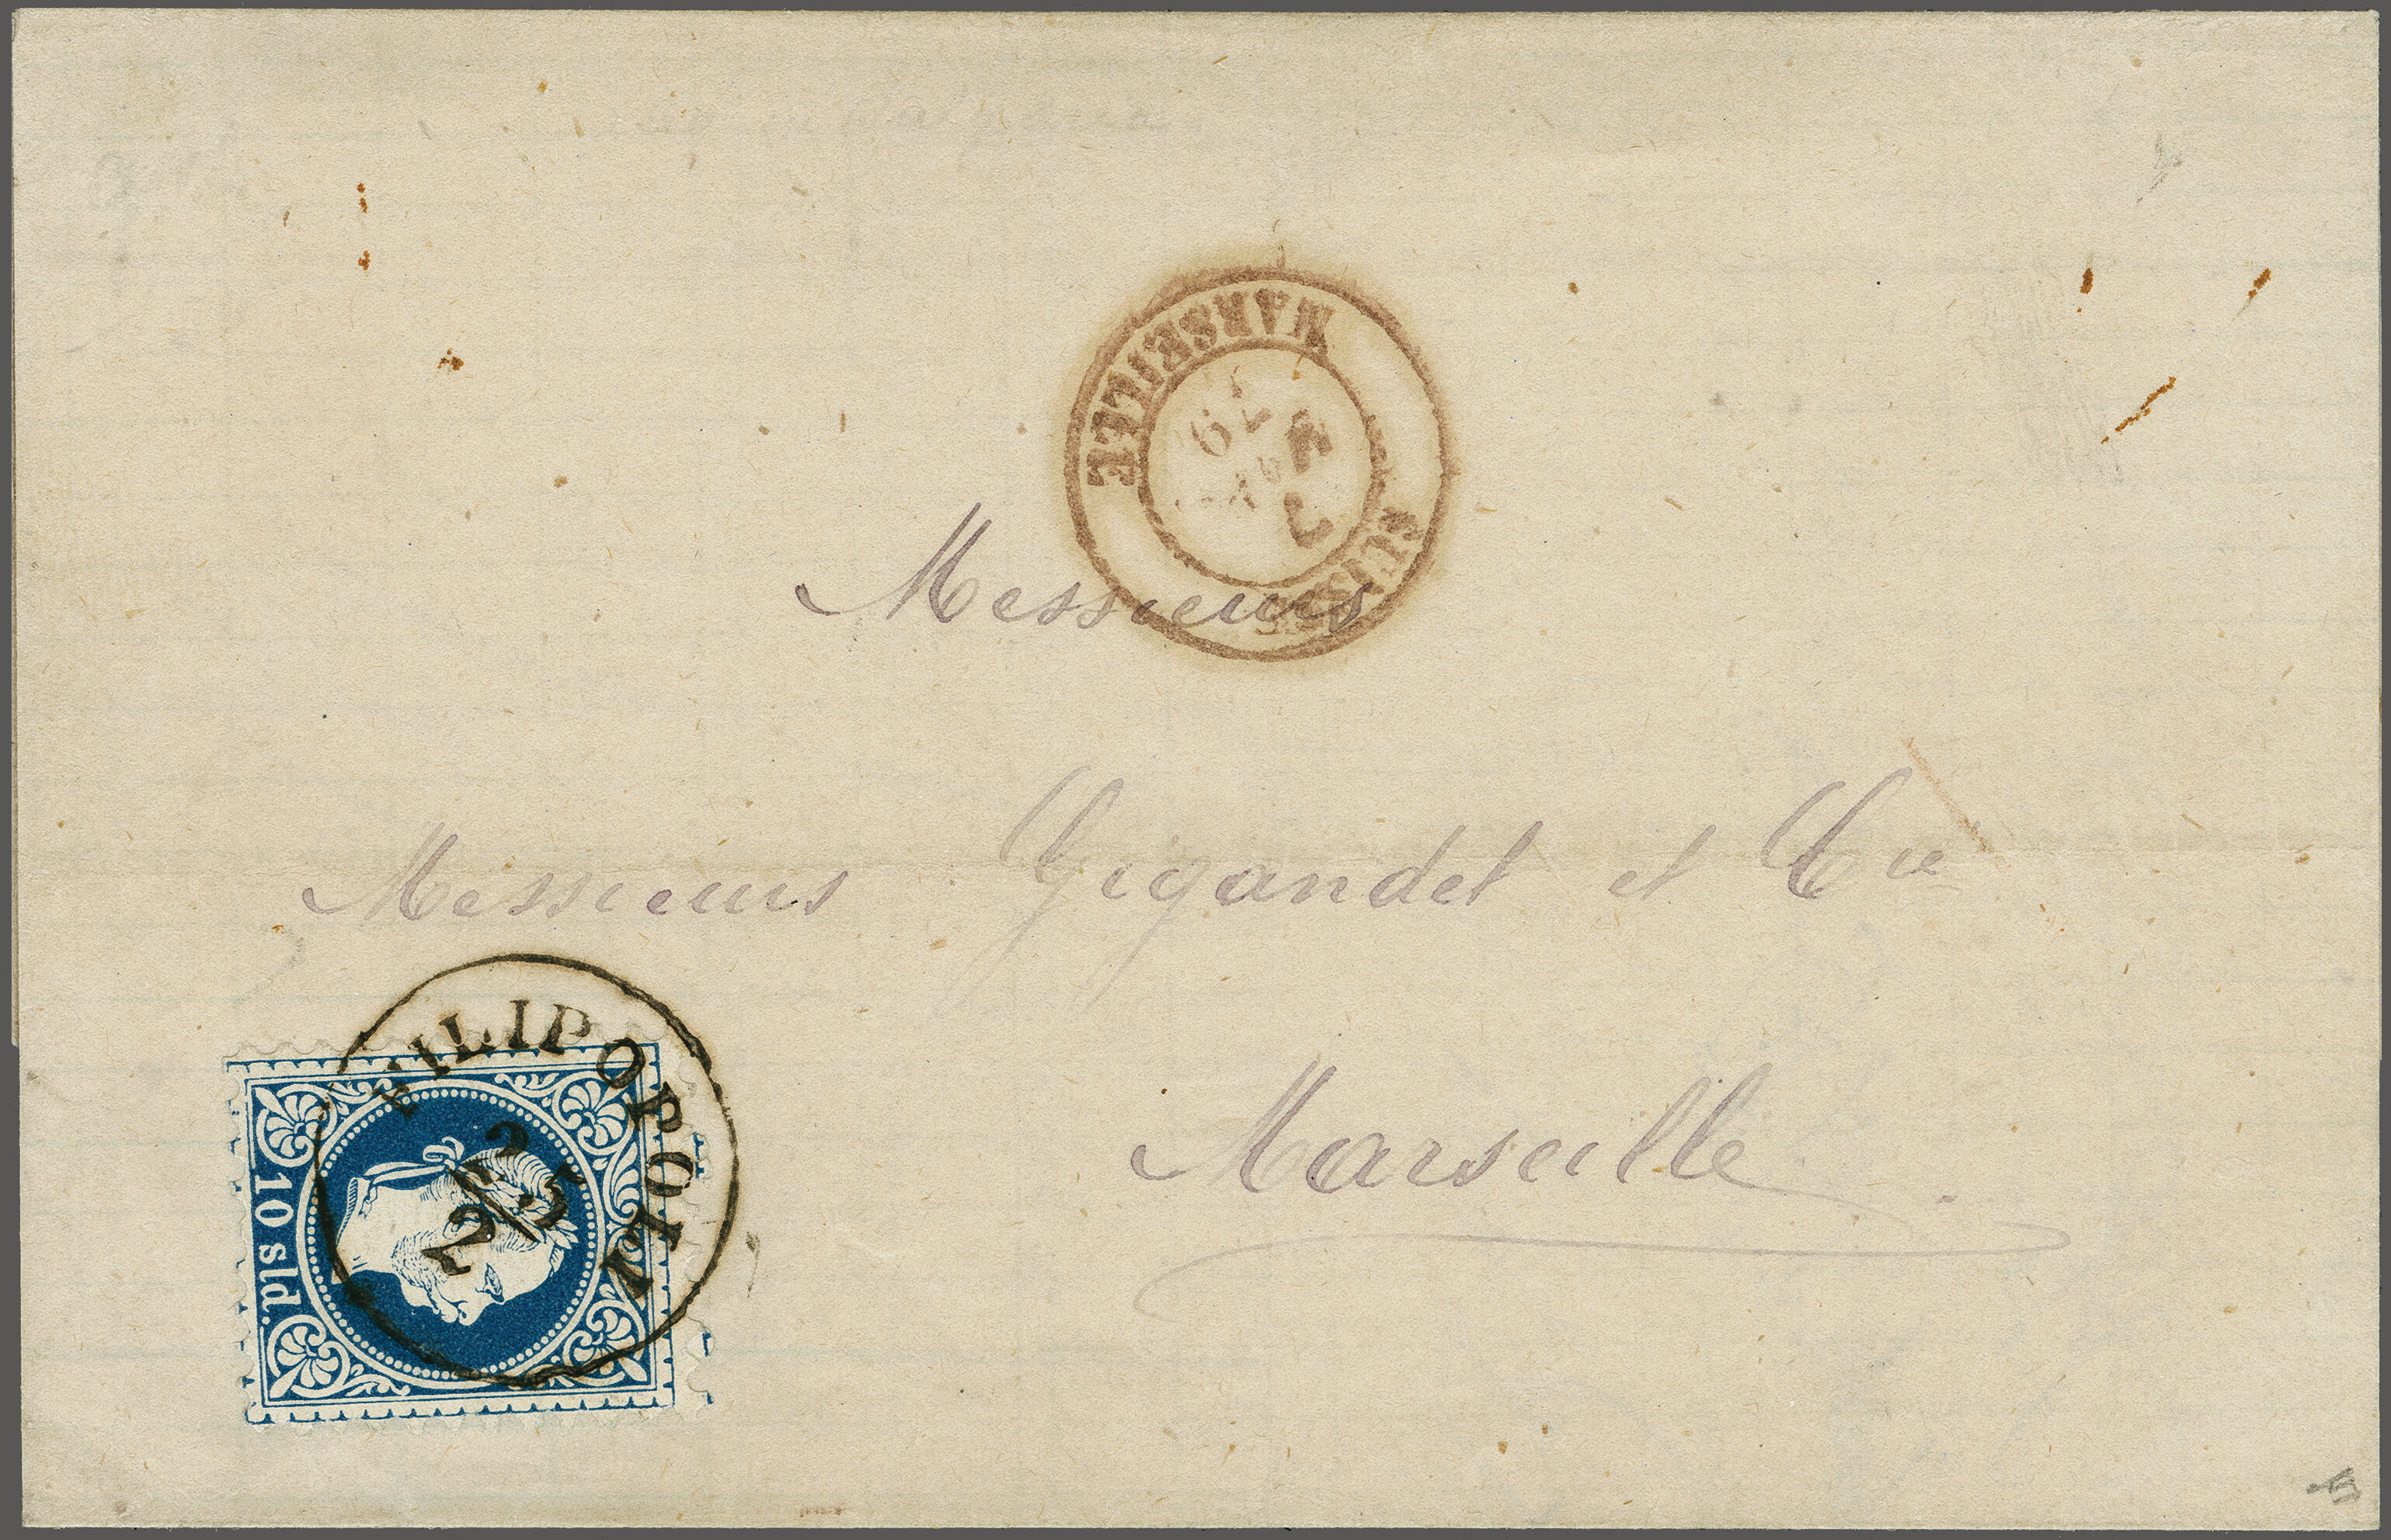 MARSEILLE
7
79
Messieurs
Messieurs Gigandet et Cie
Marseille
FILIPOPOLI
25/2
10 sld.